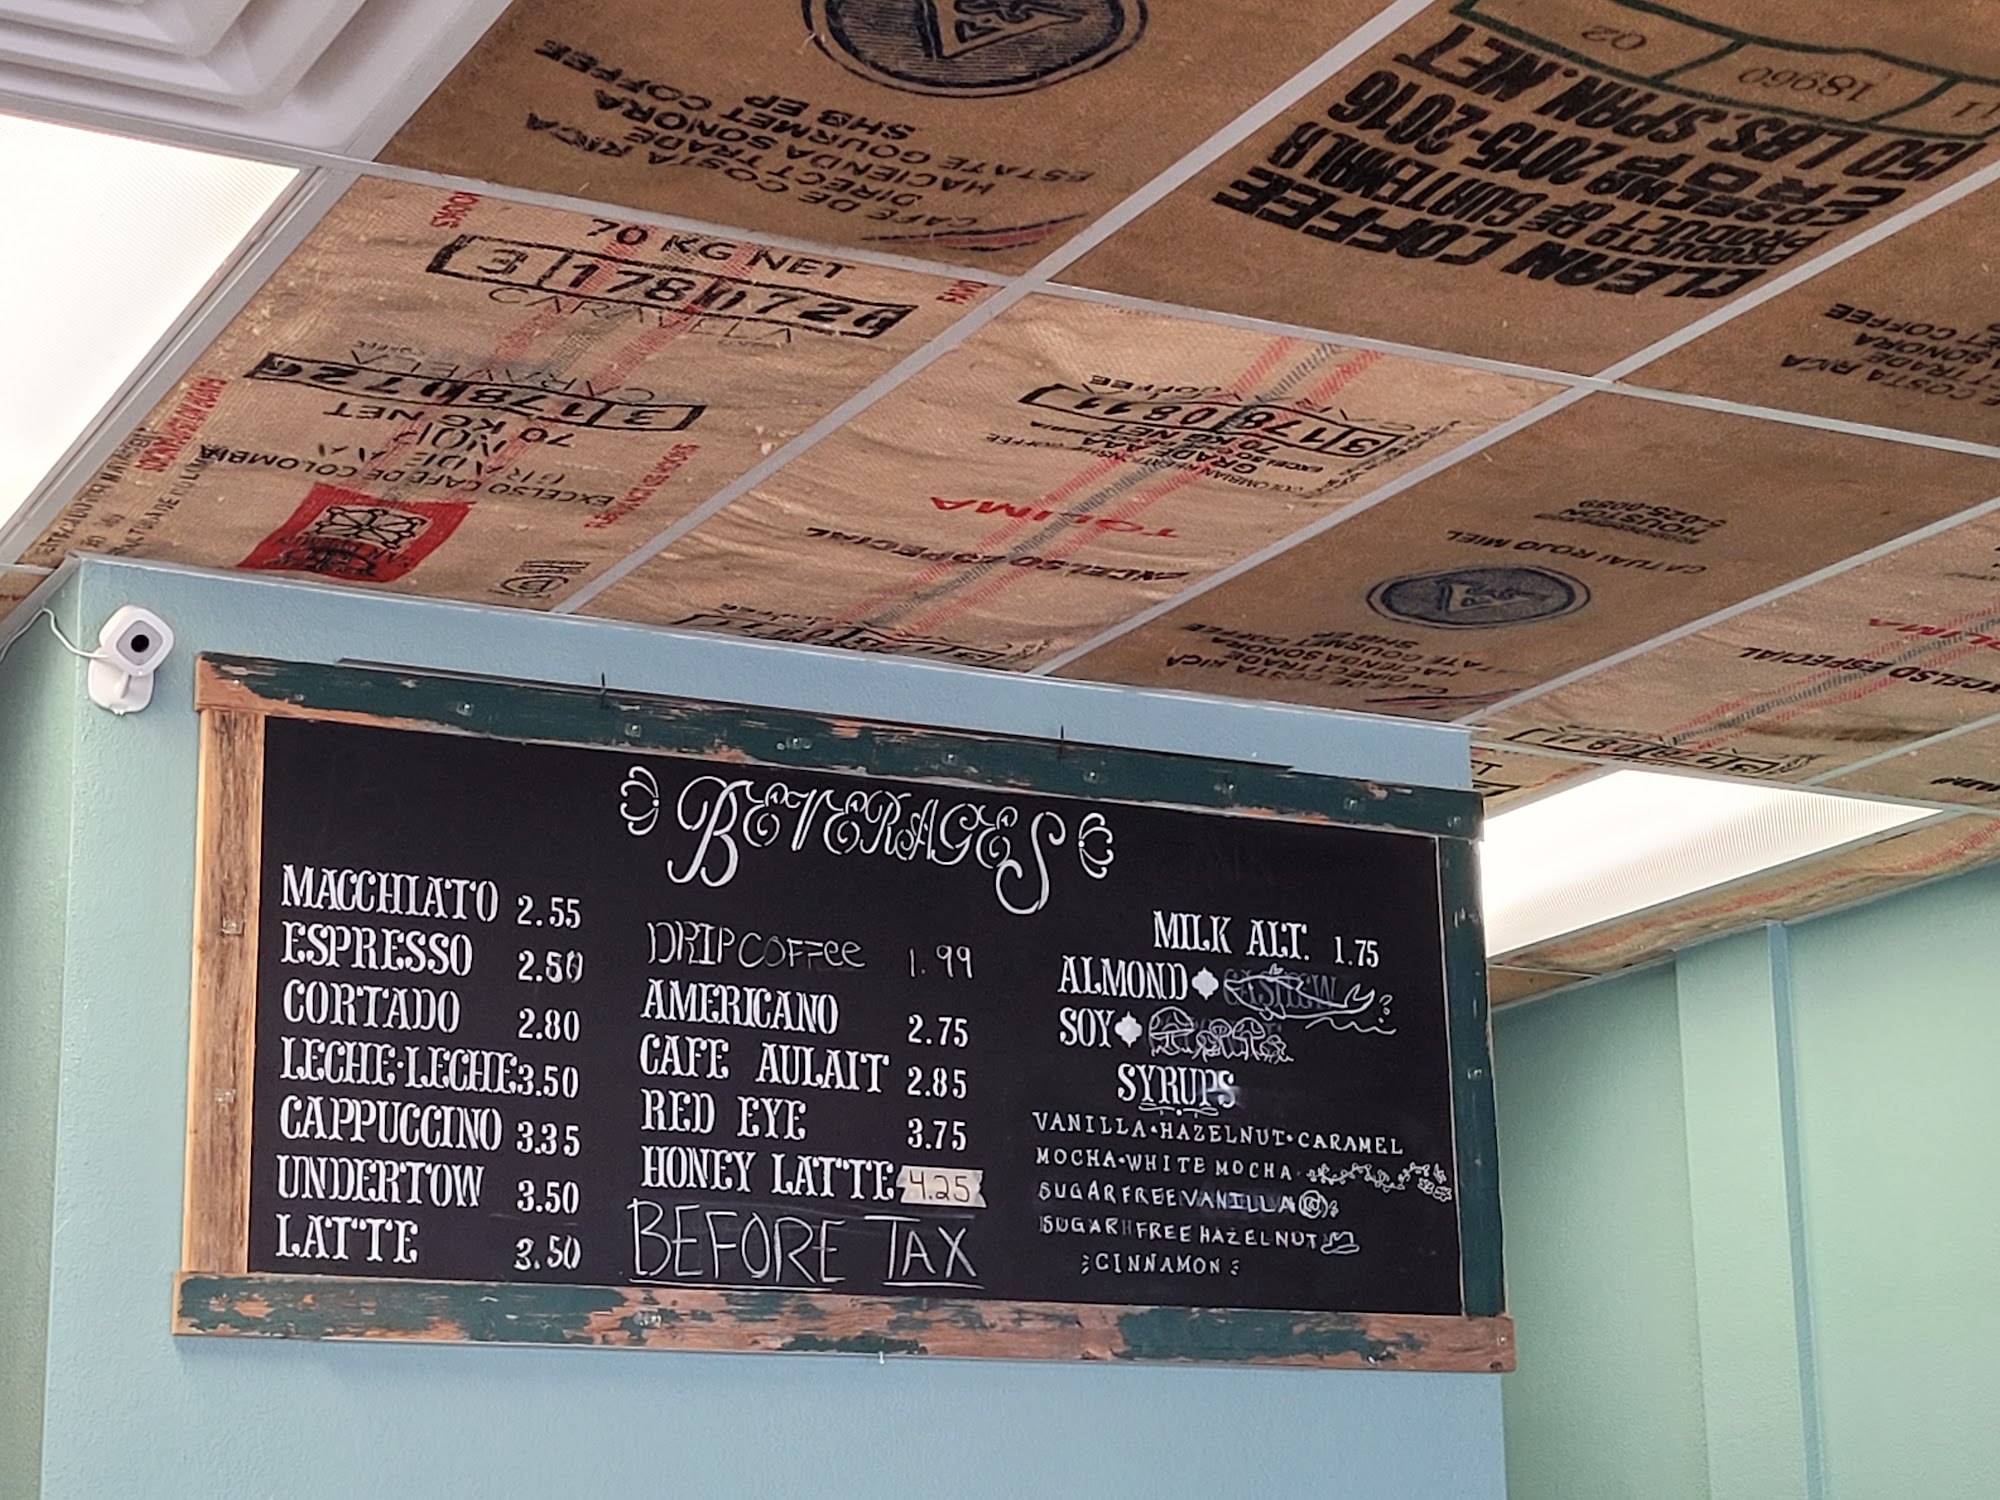 SHB EP
ESTATE GOURMET COFFEE
HACIENDA SONORA
DIRECT TRADE
CAFE DE COSTA RICA
02
18960
11
LBS. SPAN. NET
COSECHA 2015-2016
PRODUCT OF
PRODUCTO DE GUATEMALA
CLEAN COFFEE
70 KG NET
3 178 0726
CARAVELA
CARAVELA
3 178 0726
70 KG NET
EXCELSO CAFE DE COLOMBIA
COFFEE
3 178 0811
70 KG NET
GRADE AA
TOLIMA
EXCELSO ESPECIAL
HOUSTON
5-025-0089
CATUAI ROJO MIEL
SHB EP
HACIENDA SONORA
COSTA RICA
EXCELSO ESPECIAL
BEVERAGES
MACCHIATO 2.55
ESPRESSO 2.50
CORTADO 2.80
LECHE·LECHE 3.50
CAPPUCCINO 3.35
UNDERTOW 3.50
LATTE 3.50
DRIP COFFee 1.99
AMERICANO 2.75
CAFE AULAIT 2.85
RED EYE 3.75
HONEY LATTE 4.25
BEFORE TAX
MILK ALT. 1.75
ALMOND
SOY
SYRUPS
VANILLA·HAZELNUT·CARAMEL
MOCHA·WHITE MOCHA
SUGAR FREE VANILLA
SUGAR FREE HAZELNUT
CINNAMON